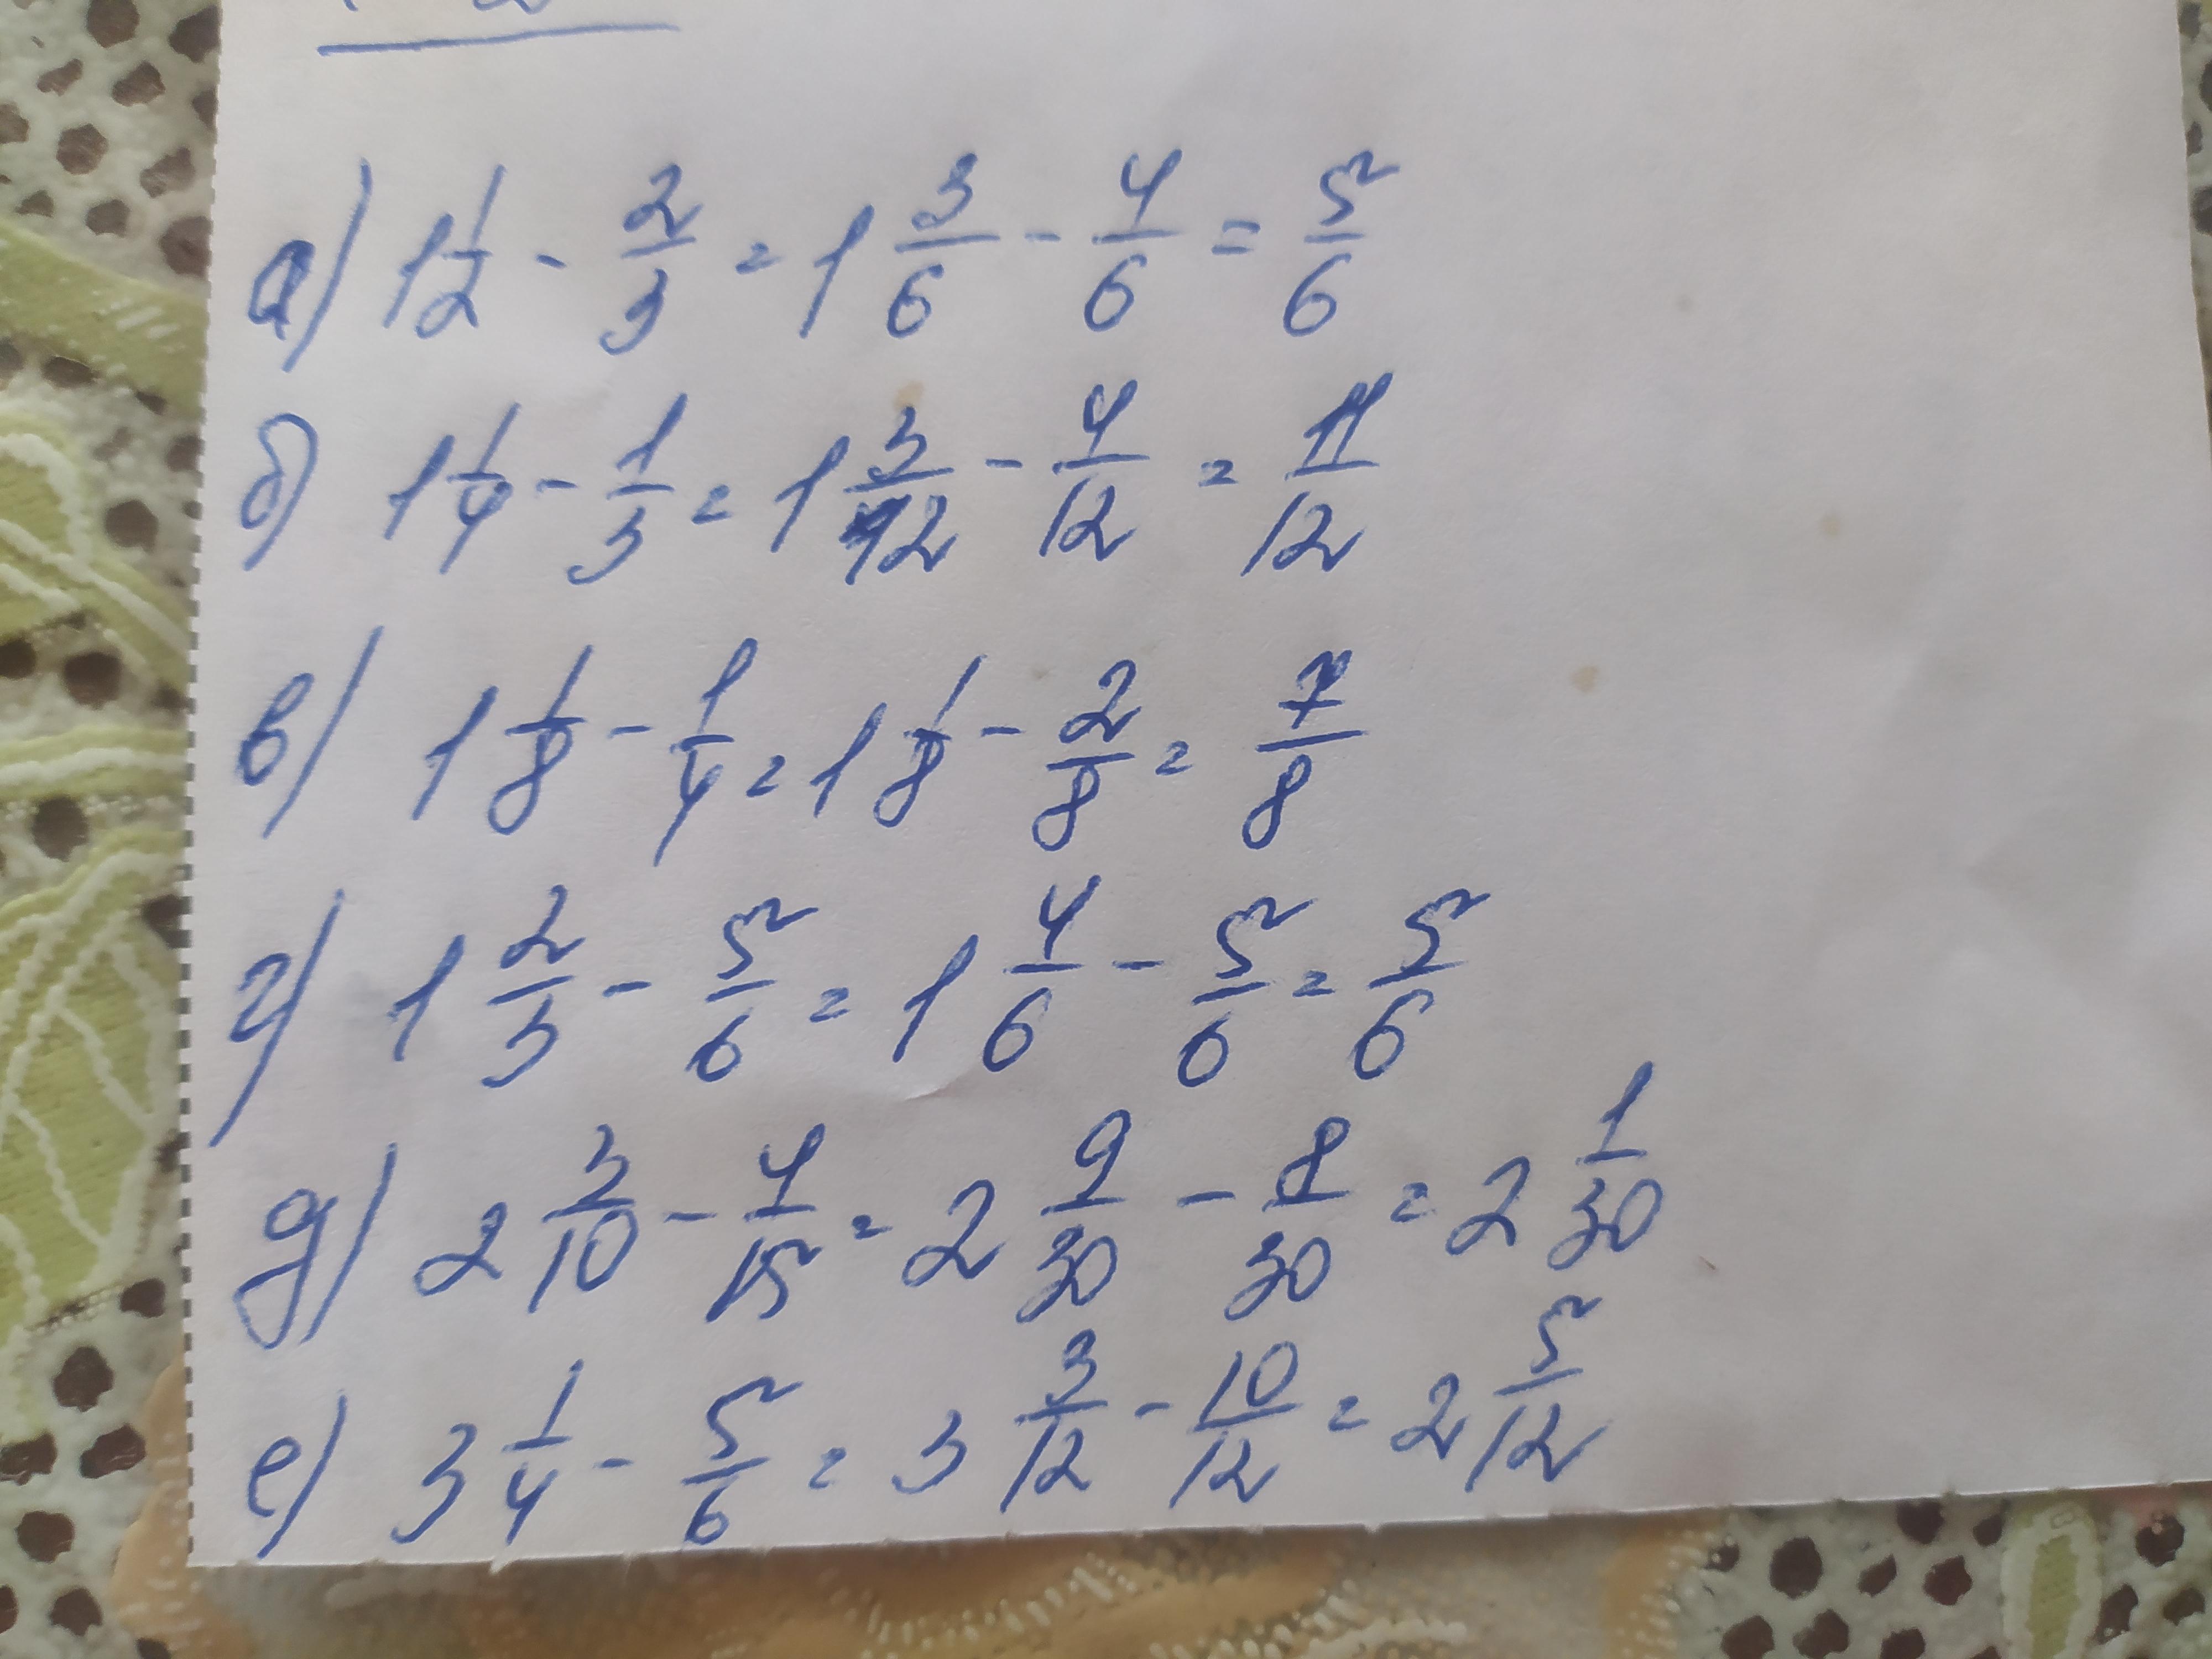 а) 1 1/2 - 2/3 = 1 3/6 - 4/6 = 5/6
б) 1 1/4 - 1/3 = 1 3/12 - 4/12 = 11/12
в) 1 1/8 - 1/4 = 1 1/8 - 2/8 = 7/8
г) 1 2/3 - 5/6 = 1 4/6 - 5/6 = 5/6
д) 2 3/10 - 4/15 = 2 9/30 - 8/30 = 2 1/30
е) 3 1/4 - 5/6 = 3 3/12 - 10/12 = 2 5/12